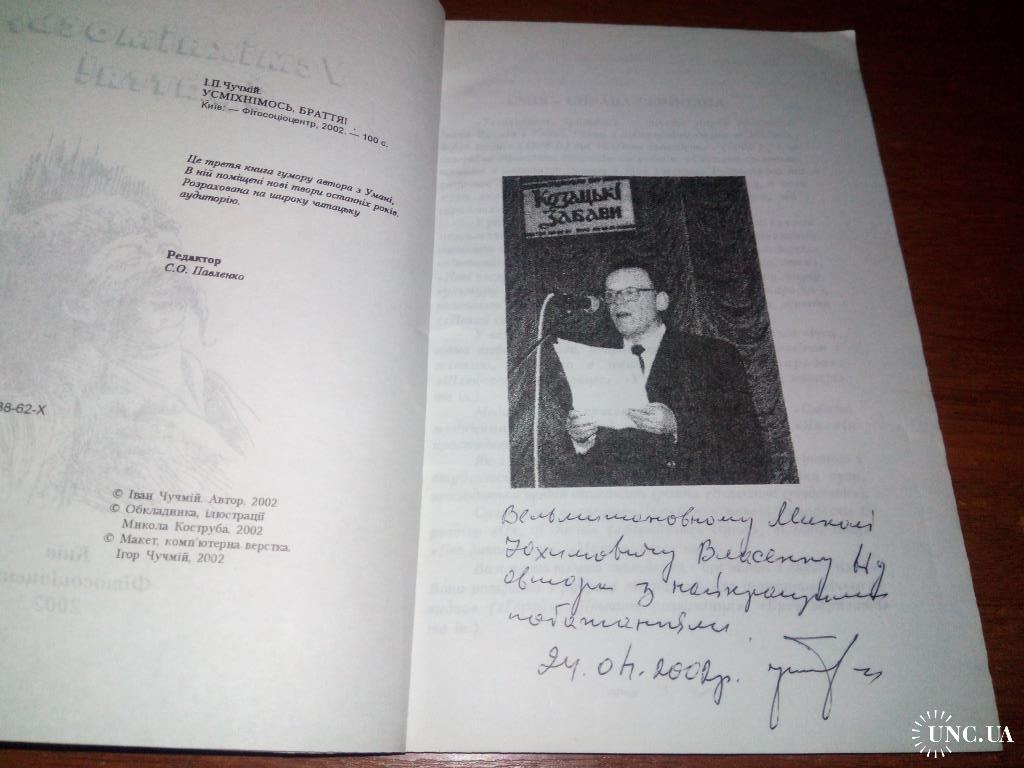 І.П.Чучмій.
УСМІХНІМОСЬ, БРАТТЯ!
Київ: — Фітосоціоцентр, 2002. — 100 с.
Це третя книга гумору автора з Умані.
В ній поміщені нові твори останніх років.
Розрахована на широку читацьку
аудиторію.
Редактор
С.О. Павленко
38-62-X
© Іван Чучмій. Автор. 2002
© Обкладинка, ілюстрації
Микола Коструба. 2002
© Макет, комп'ютерна верстка.
Ігор Чучмій, 2002
Козацькі
Забави
Вельмишановному Миколі
Юхимовичу Власенку від
автора з найкращими
побажаннями.
24.04.2002р.
UNC.UA